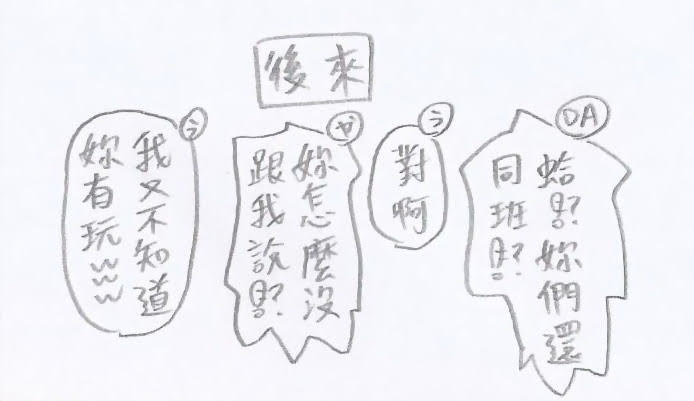 後來
DA
蛤!?妳們還
同班!?
う
對啊
妳怎麼沒
跟我說!?
う
我又不知道
妳有玩~~~